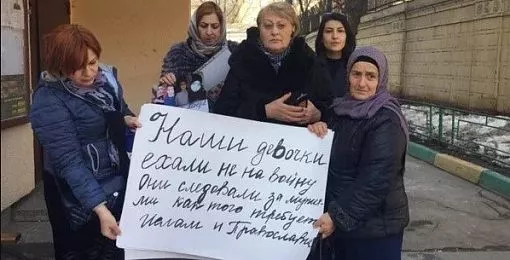 Наши девочки
ехали не на войну
Они следовали за мужья-
ми как того требует
Ислам и Православие